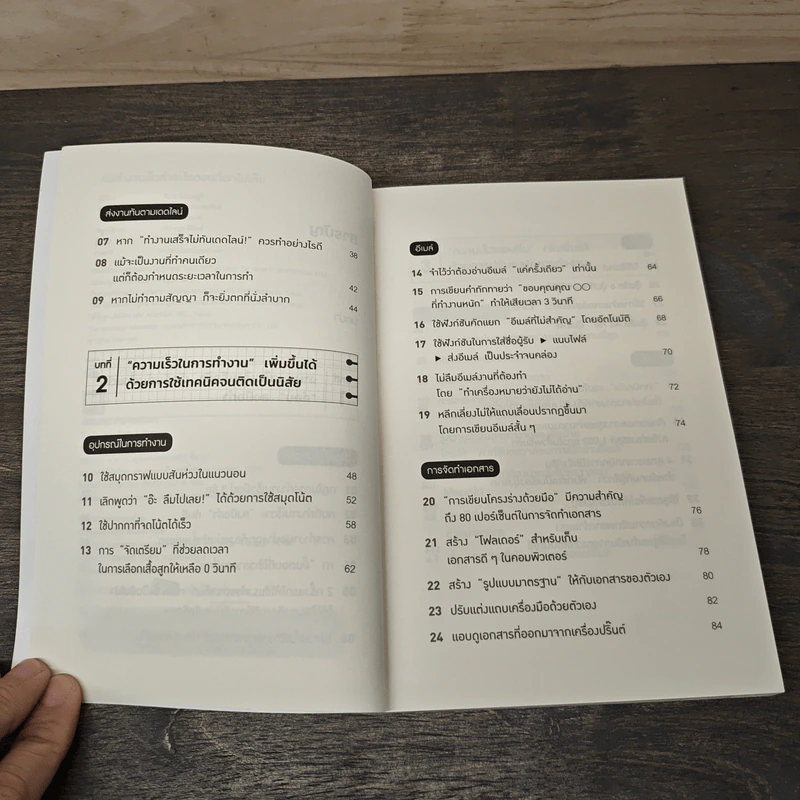 ส่งงานทันตามเดดไลน์
07 หาก "ทำงานเสร็จไม่ทันเดดไลน์!" ควรทำอย่างไรดี 38
08 แม้จะเป็นงานที่ทำคนเดียว
แต่ก็ต้องกำหนดระยะเวลาในการทำ 42
09 หากไม่ทำตามสัญญา ก็จะยิ่งตกที่นั่งลำบาก 44
บทที่ 2
"ความเร็วในการทำงาน" เพิ่มขึ้นได้
ด้วยการใช้เทคนิคจนติดเป็นนิสัย
อุปกรณ์ในการทำงาน
10 ใช้สมุดกราฟแบบสันห่วงในแนวนอน 48
11 เลิกพูดว่า "อ๊ะ ลืมไปเลย!" ได้ด้วยการใช้สมุดโน้ต 52
12 ใช้ปากกาที่จดโน้ตได้เร็ว 58
13 การ "จัดเตรียม" ที่ช่วยลดเวลา
ในการเลือกเสื้อสูทให้เหลือ 0 วินาที 62
อีเมล์
14 จำไว้ว่าต้องอ่านอีเมล์ "แค่ครั้งเดียว" เท่านั้น 64
15 การเขียนคำทักทายว่า "ขอบคุณคุณ ○○
ที่ทำงานหนัก" ทำให้เสียเวลา 3 วินาที 66
16 ใช้ฟังก์ชันคัดแยก "อีเมล์ที่ไม่สำคัญ" โดยอัตโนมัติ 68
17 ใช้ฟังก์ชันในการใส่ชื่อผู้รับ ▶ แนบไฟล์
▶ ส่งอีเมล์ เป็นประจำจนคล่อง 70
18 ไม่ลืมอีเมล์งานที่ต้องทำ
โดย "ทำเครื่องหมายว่ายังไม่ได้อ่าน" 72
19 หลีกเลี่ยงไม่ให้แถบเลื่อนปรากฏขึ้นมา
โดยการเขียนอีเมล์สั้น ๆ 74
การจัดทำเอกสาร
20 "การเขียนโครงร่างด้วยมือ" มีความสำคัญ
ถึง 80 เปอร์เซ็นต์ในการจัดทำเอกสาร 76
21 สร้าง "โฟลเดอร์" สำหรับเก็บ
เอกสารดี ๆ ในคอมพิวเตอร์ 78
22 สร้าง "รูปแบบมาตรฐาน" ให้กับเอกสารของตัวเอง 80
23 ปรับแต่งแถบเครื่องมือด้วยตัวเอง 82
24 แอบดูเอกสารที่ออกมาจากเครื่องปริ๊นต์ 84